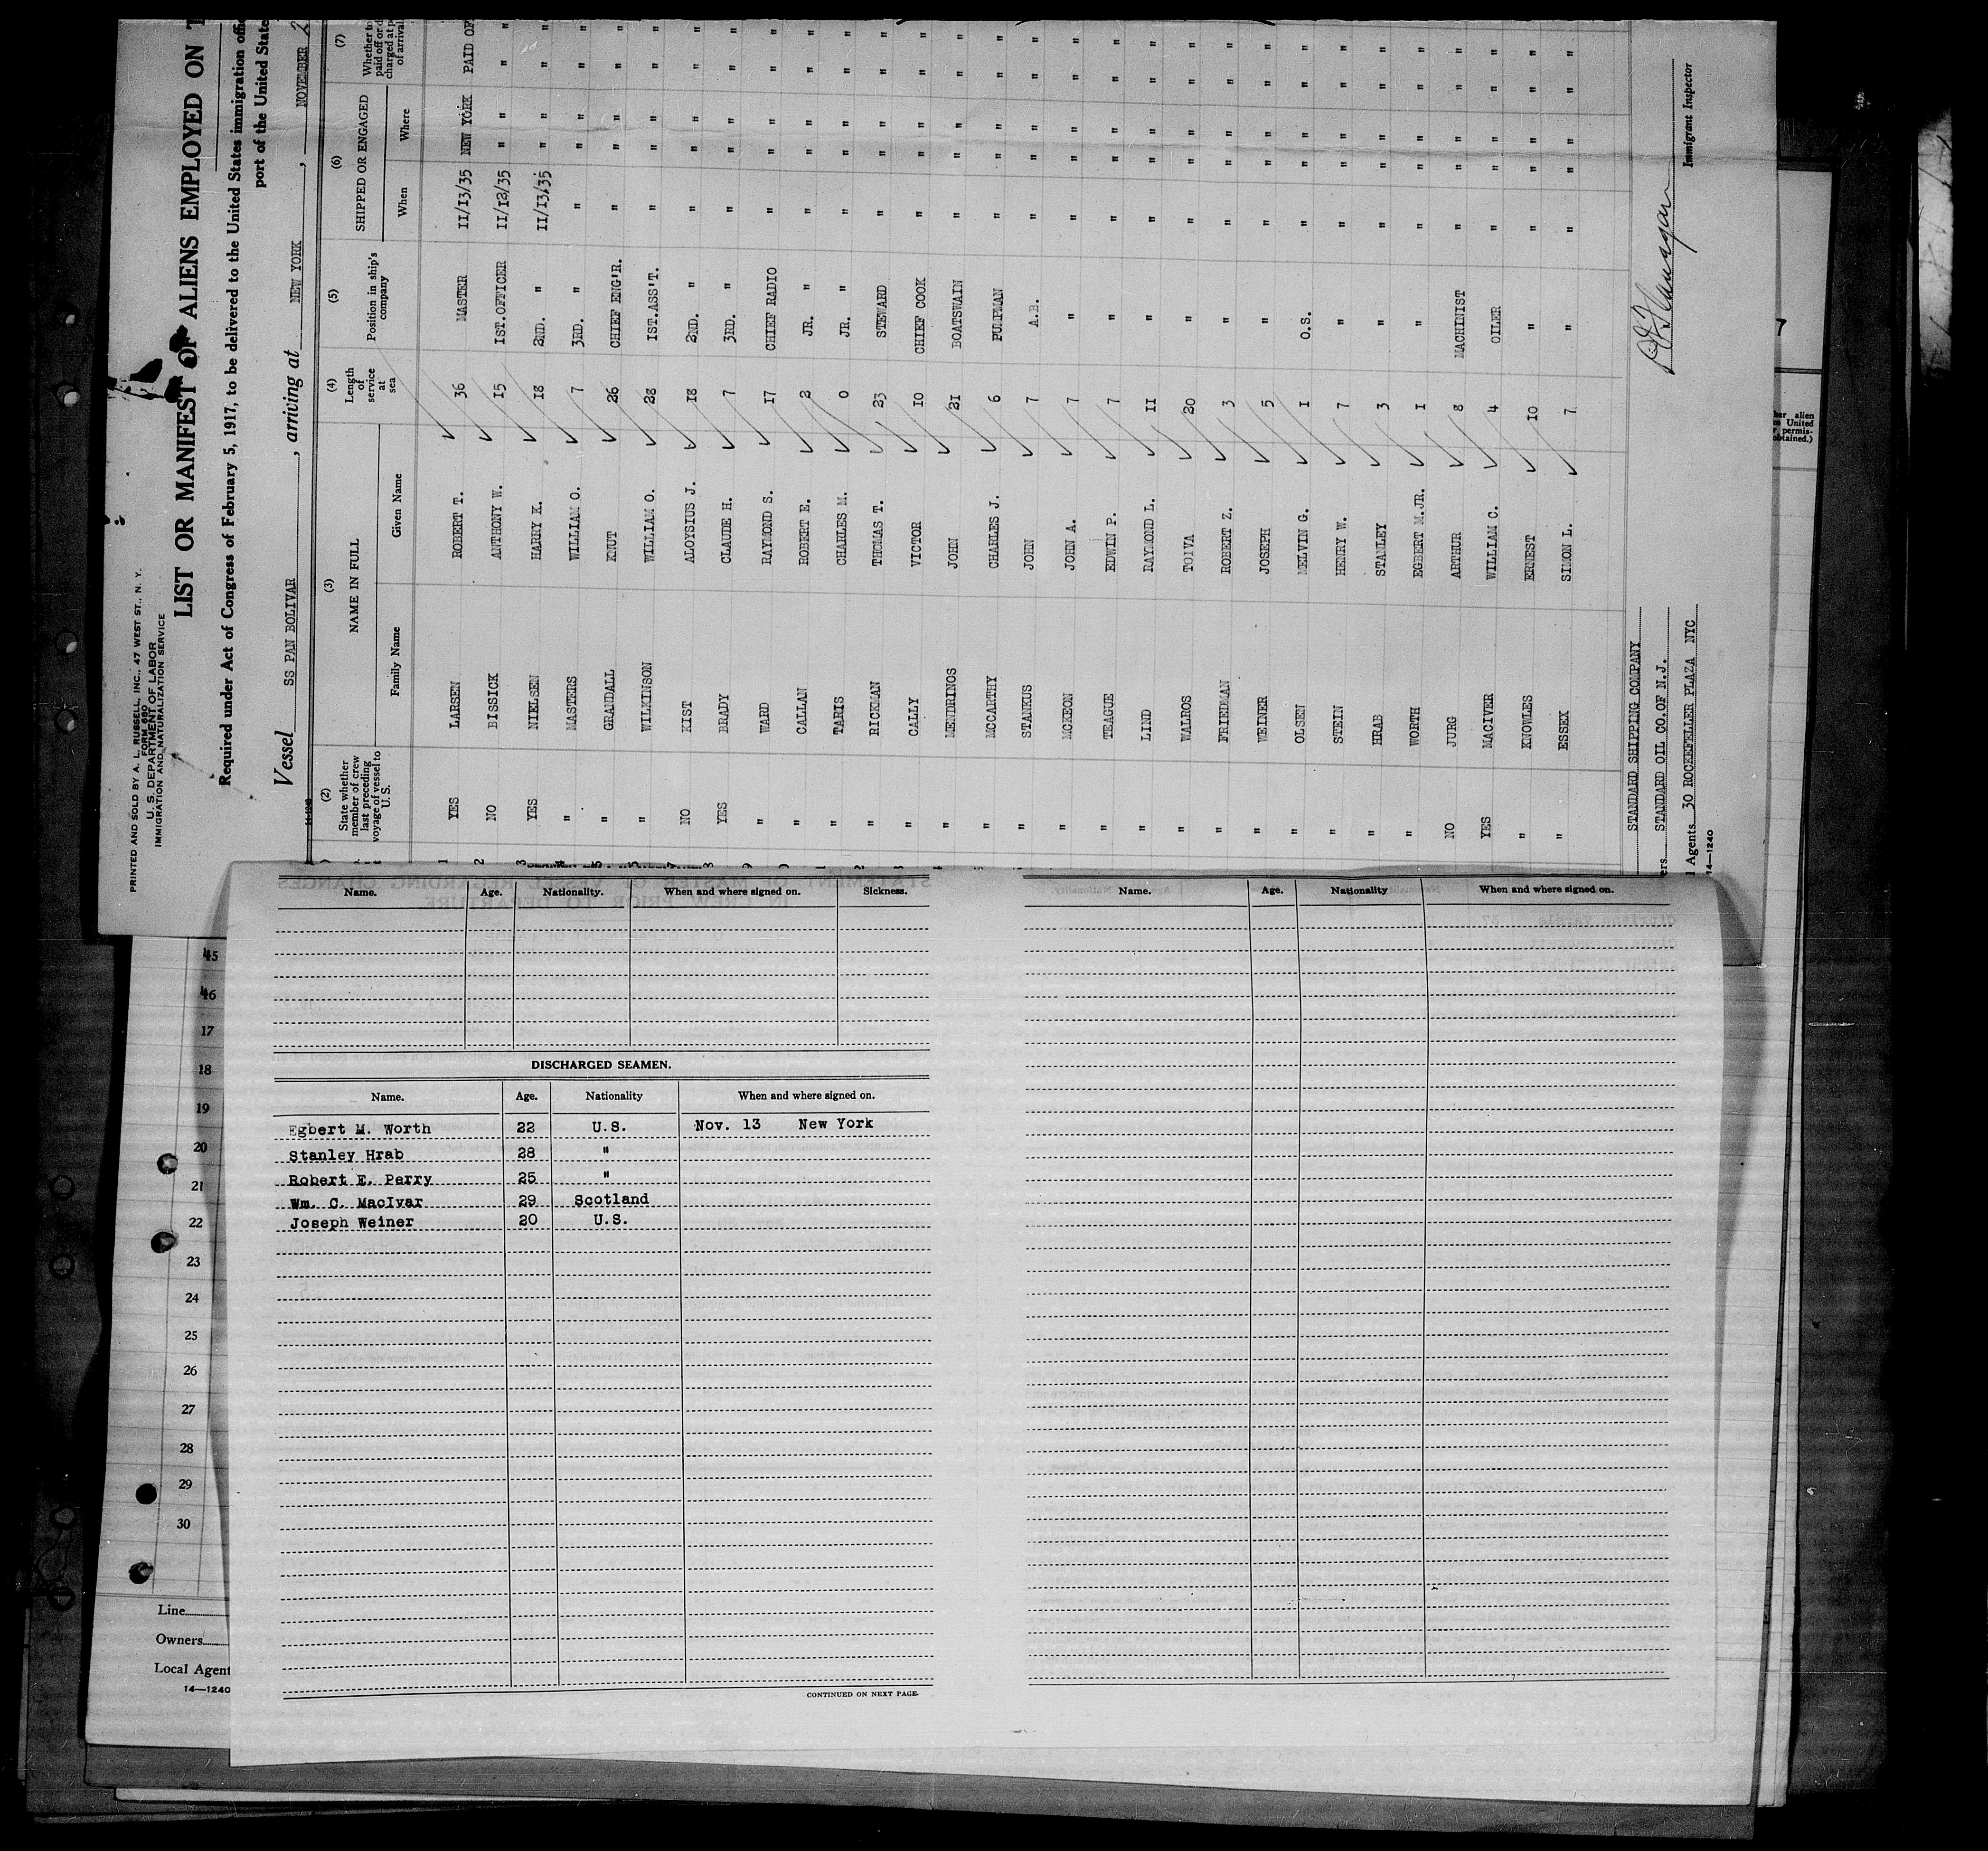 PRINTED AND SOLD BY A. L. RUSSELL, INC., 47 WEST ST., N. Y.
FORM 680
U. S. DEPARTMENT OF LABOR
IMMIGRATION AND NATURALIZATION SERVICE
LIST OR MANIFEST OF ALIENS EMPLOYED ON T
Required under Act of Congress of February 5, 1917, to be delivered to the United States immigration offi
port of the United State
Vessel SS PAN BOLIVAR , arriving at NEW YORK , NOVEMBER 2
(2) (3) (4) (5) (6) (7)
State whether member of crew last preceding voyage of vessel to U. S. NAME IN FULL Family Name Given Name Length of service at sea Position in ship's company SHIPPED OR ENGAGED When Where Whether to paid off or d charged at p of arrival
1 YES LARSEN ROBERT T. 36 MASTER 11/13/35 NEW YORK PAID OF
2 NO BISSICK ANTHONY W. 15 1ST.OFFICER 11/12/35 " "
3 YES NIELSEN HARRY K. 18 2ND. " 11/13/35 " "
" MASTERS WILLIAM O. 7 3RD. " " " "
5 " GRANDALL KNUT 26 CHIEF ENG'R. " " "
" WILKINSON WILLIAM O. 28 1ST.ASS'T. " " "
NO KIST ALOYSIUS J. 18 2ND. " " " "
8 YES BRADY CLAUDE H. 7 3RD. " " " "
" WARD RAYMOND S. 17 CHIEF RADIO " " "
" CALLAN ROBERT E. 2 JR. " " " "
" TARIS CHARLES M. 0 JR. " " " "
" RICKMAN THOMAS T. 23 STEWARD " " "
" CALLY VICTOR 10 CHIEF COOK " " "
" MENDRINOS JOHN 21 BOATSWAIN " " "
" MCCARTHY CHARLES J. 6 PUMPMAN " " "
" STANKUS JOHN 7 A.B. " " "
" MCKEON JOHN A. 7 " " " "
" TEAGUE EDWIN P. 7 " " " "
" LIND RAYMOND L. 11 " " " "
" WALROS TOIVA 20 " " " "
" FRIEDMAN ROBERT Z. 3 " " " "
" WEINER JOSEPH 5 " " " "
" OLSEN MELVIN G. 1 O.S. " " "
" STEIN HENRY W. 7 " " " "
" HRAB STANLEY 3 " " " "
" WORTH EGBERT M.JR. 1 " " " "
NO JURG ARTHUR 8 MACHINIST " " "
YES MACIVER WILLIAM C. 4 OILER " " "
" KNOWLES ERNEST 10 " " " "
" ESSEX SIMON L. 7 " " " "
STANDARD SHIPPING COMPANY
ers STANDARD OIL CO.OF N.J.
l Agents 30 ROCKEFELLER PLAZA NYC
14—1240
Immigrant Inspector
7
her alien
m United
permis-
obtained.)
Name. Age. Nationality. When and where signed on. Sickness.
DISCHARGED SEAMEN.
Name. Age. Nationality When and where signed on.
Egbert M. Worth 22 U.S. Nov. 13 New York
Stanley Hrab 28 "
Robert E. Perry 25 "
Wm. C. MacIvar 29 Scotland
Joseph Weiner 20 U.S.
CONTINUED ON NEXT PAGE.
Name. Age. Nationality When and where signed on.
45
46
17
18
19
20
21
22
23
24
25
26
27
28
29
30
Line
Owners
Local Agent
14—1240